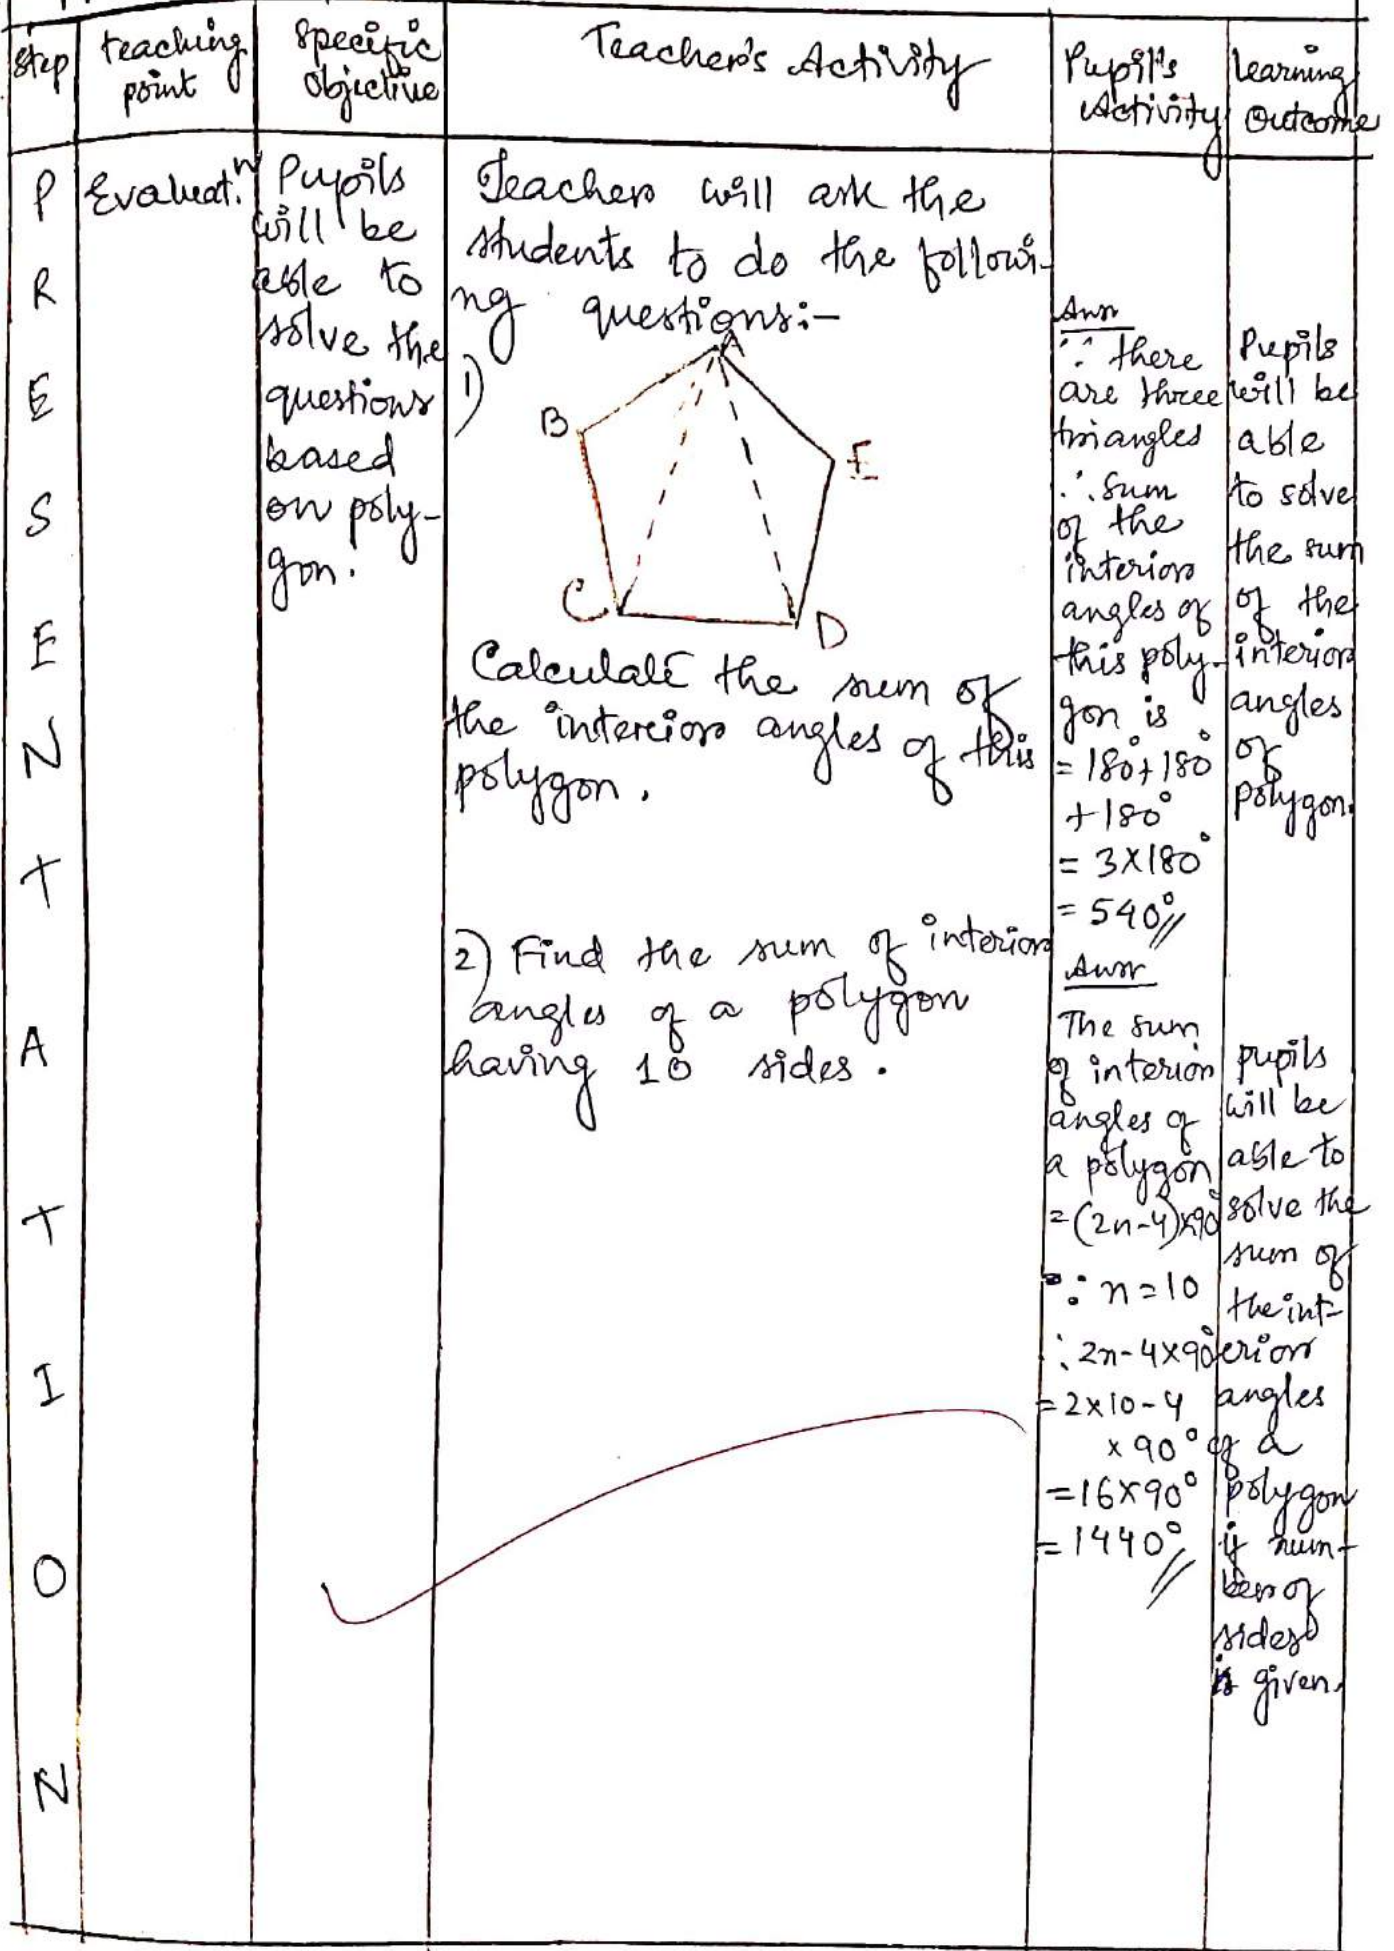 Step
teaching
point
Specific
Objective
Teacher's Activity
Pupil's
Activity
Learning
Outcome
P
R
E
S
E
N
T
A
T
I
O
N
Evaluat.n
Pupils
will be
able to
solve the
questions
based
on poly-
gon.
Teacher will ask the
students to do the followi-
ng questions:-
1)
A
B
E
C
D
Calculate the sum of
the interior angles of this
polygon.
2) Find the sum of interior
angles of a polygon
having 10 sides.
Ans
∵ there
are three
triangles
∴ Sum
of the
interior
angles of
this poly-
gon is
= 180°+180°
+180°
= 3×180°
= 540°//
Ans
The sum
of interior
angles of
a polygon
=(2n-4)×90°
∵ n=10
∴ 2n-4×90°
=2×10-4
×90°
=16×90°
=1440°//
Pupils
will be
able
to solve
the sum
of the
interior
angles
of
polygon.
pupils
will be
able to
solve the
sum of
the int-
erior
angles
of a
polygon
if num-
ber of
sides
is given.